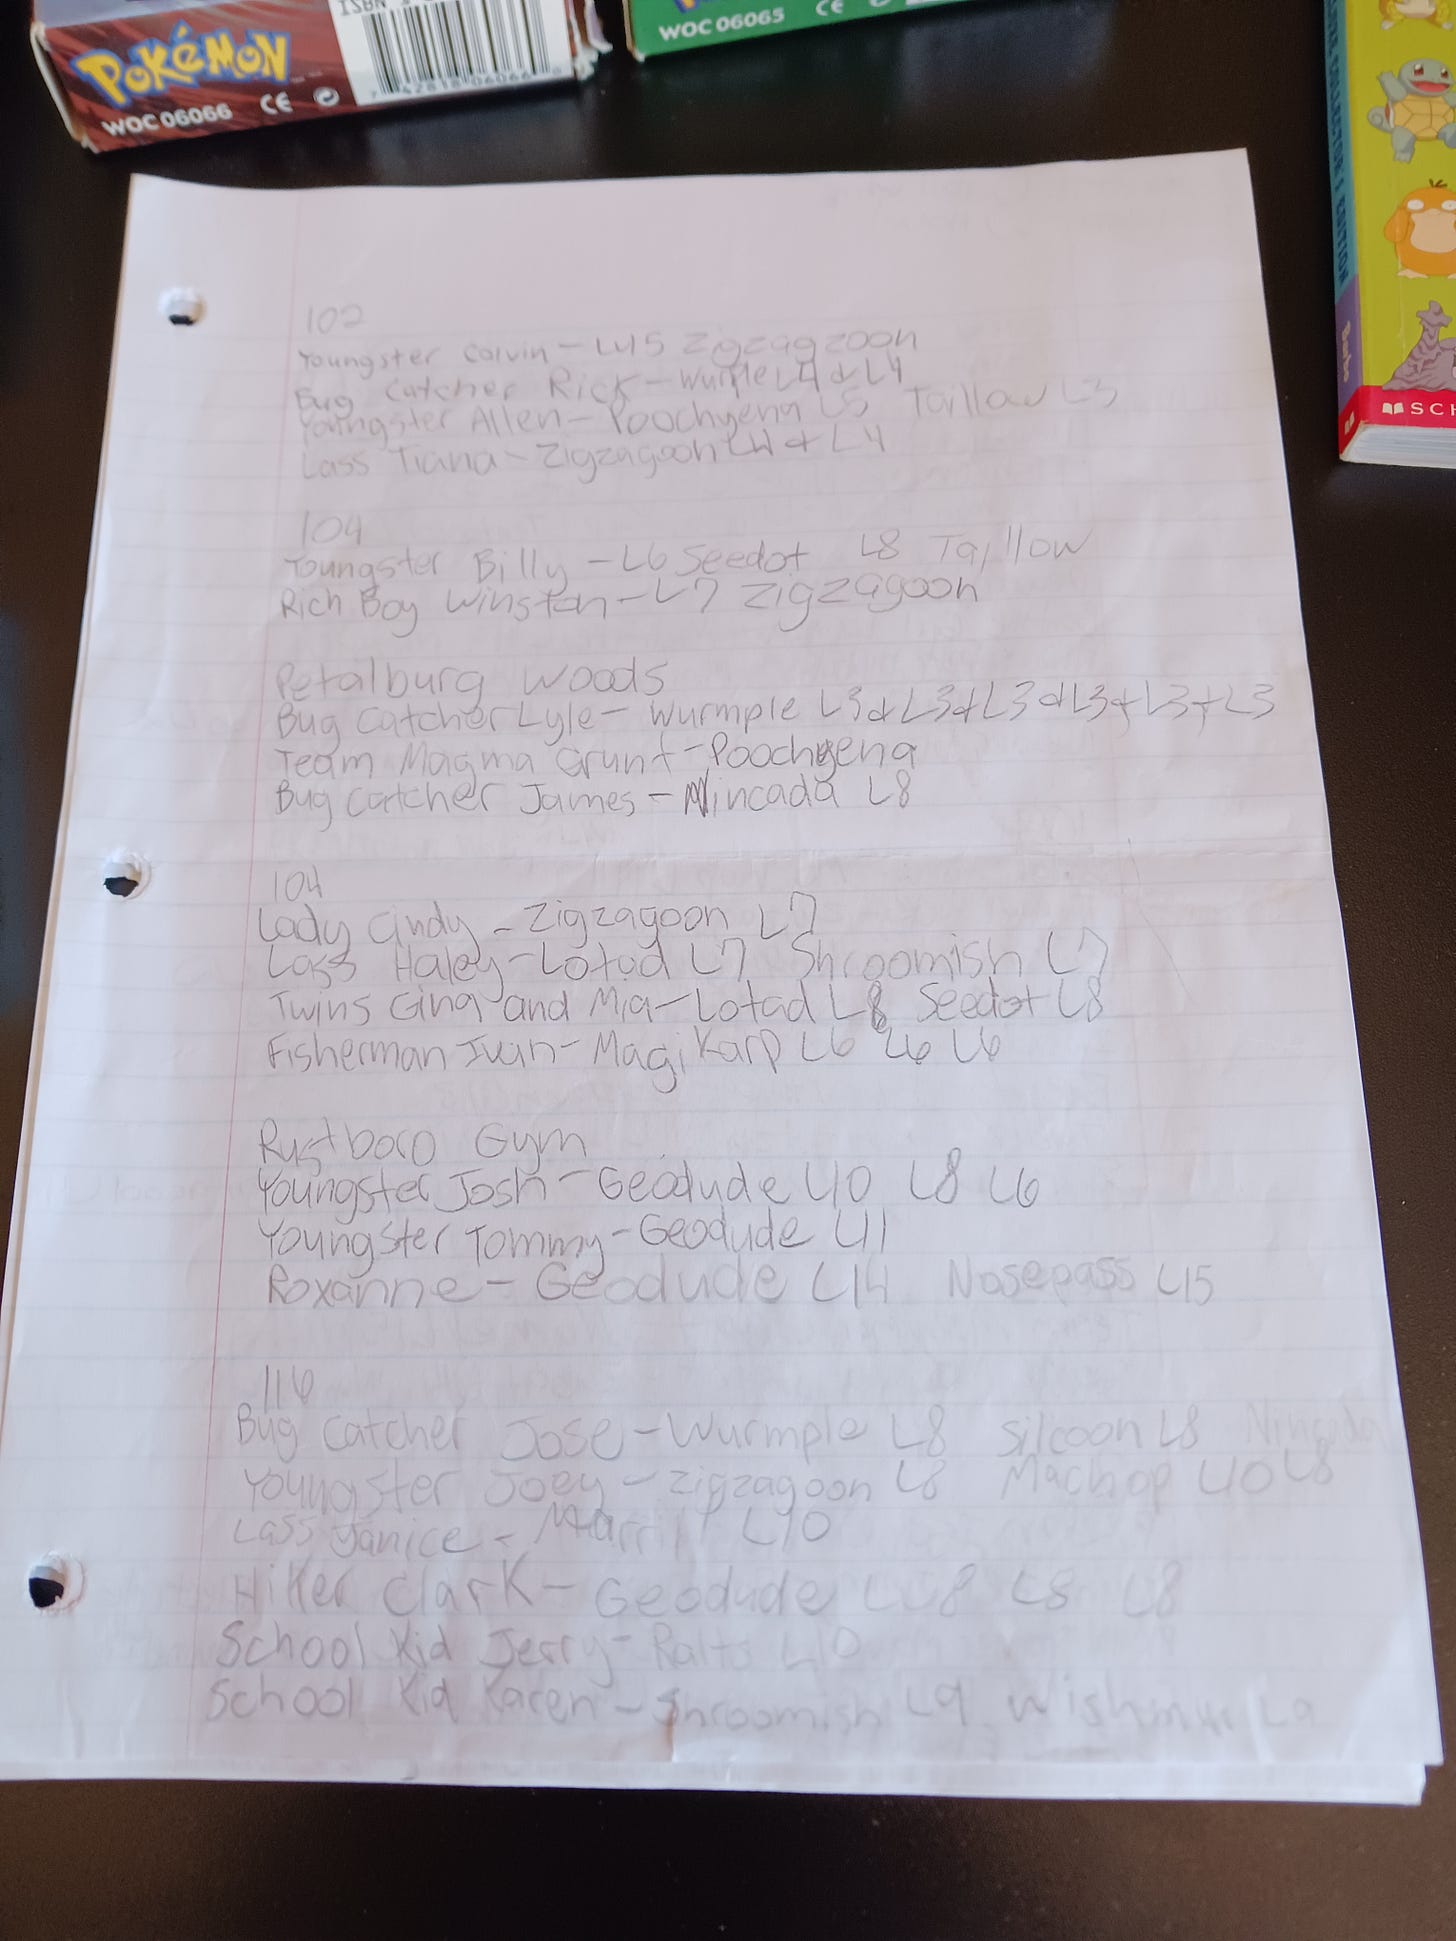 ISBN
POKéMON
WOC 06066 CE
WOC 06065 CE
EDITION
SCH
102
Youngster Calvin - LV5 Zigzagzoon
Bug Catcher Rick - Wurmple L4 & L4
Youngster Allen - Poochyena L5 Taillow L3
Lass Tiana - Zigzagoon L4 & L4
104
Youngster Billy - L6 Seedot L8 Taillow
Rich Boy Winston - L7 Zigzagoon
Petalburg Woods
Bug Catcher Lyle - Wurmple L3 & L3 & L3 & L3 & L3 & L3
Team Magma Grunt - Poochyena
Bug Catcher James - Nincada L8
104
Lady Cindy - Zigzagoon L7
Lass Haley - Lotad L7 Shroomish L7
Twins Gina and Mia - Lotad L8 Seedot L8
Fisherman Ivan - Magikarp L6 L6 L6
Rustboro Gym
Youngster Josh - Geodude L10 L8 L6
Youngster Tommy - Geodude L11
Roxanne - Geodude L14 Nosepass L15
116
Bug Catcher Jose - Wurmple L8 Silcoon L8 Nincada
L8
Youngster Joey - Zigzagoon L8 Machop L10
Lass Janice - Marrill L10
Hiker Clark - Geodude L8 L8 L8
School Kid Jerry - Ralts L10
School Kid Karen - Shroomish L9 Wishmur L9